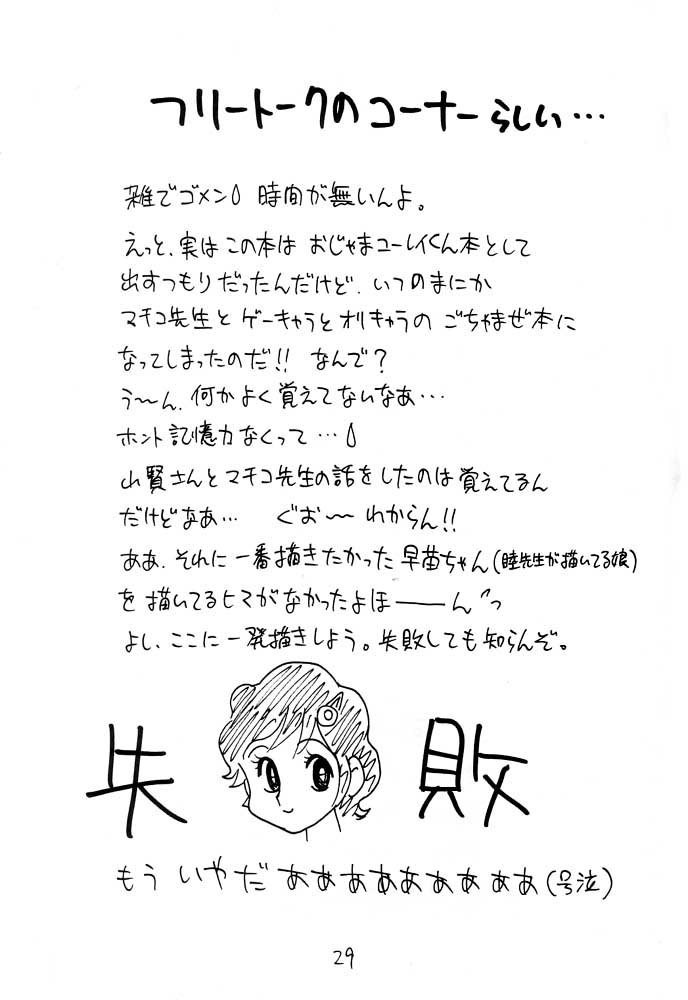 フリートークのコーナーらしい…
雑でゴメン 時間が無いんよ。
えっと、実はこの本は おじゃまユーレイくん本として
出すつもりだったんだけど、いつのまにか
マチコ先生と ゲーキャラとオリキャラの ごちゃまぜ本に
なってしまったのだ!! なんで?
う〜ん、何かよく覚えてないなあ…
ホント記憶力なくって…
山賢さんと マチコ先生の話をしたのは覚えてるん
だけどなあ… ぐお〜 わからん!!
ああ、それに一番描きたかった早苗ちゃん(睦先生が描いてる娘)
を描いてるヒマがなかったよほ――んっ
よし、ここに一発描きしよう。失敗しても知らんぞ。
失 敗
もう いやだ あぁぁぁぁぁぁぁぁ(号泣)
29